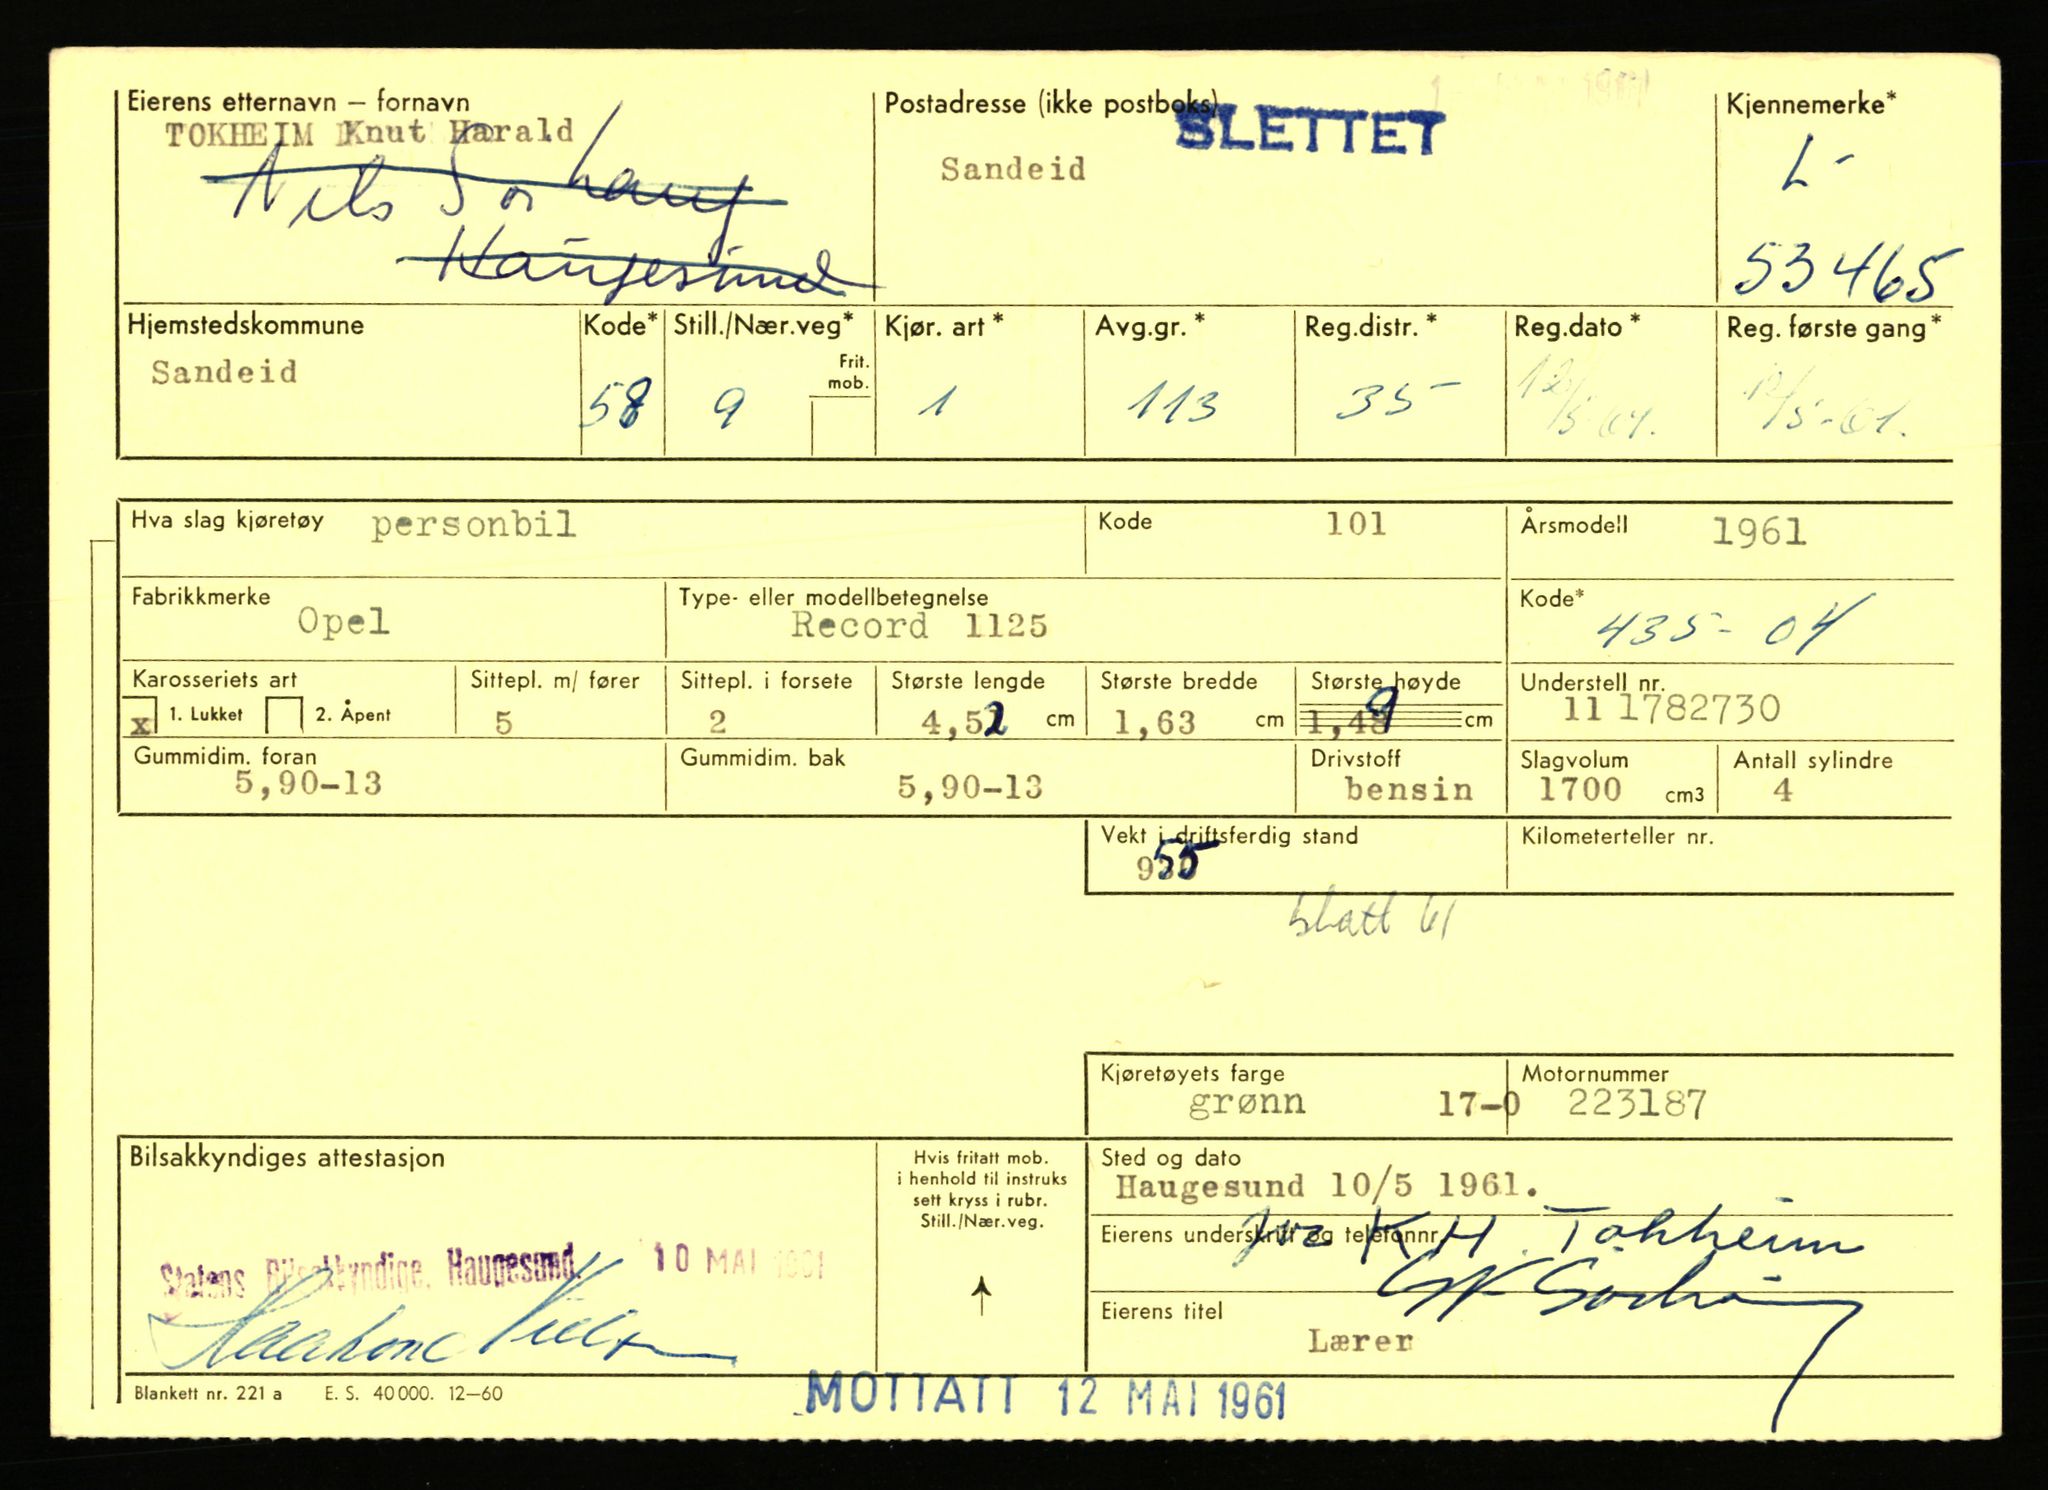 Eierens etternavn – fornavn
TOKHEIM Knut Harald
Nils Sørhaug
Haugesund
Postadresse (ikke postboks)
SLETTET
Sandeid
Kjennemerke*
L-
53465
Hjemstedskommune
Sandeid
Kode*
58
Still./Nær.veg*
9
Frit.
mob.
Kjør. art *
1
Avg.gr. *
113
Reg.distr. *
35
Reg.dato *
12/5-61.
Reg. første gang*
12/5-61.
Hva slag kjøretøy personbil
Kode 101
Årsmodell 1961
Fabrikkmerke
Opel
Type- eller modellbetegnelse
Record 1125
Kode*
435-04
Karosseriets art
x 1. Lukket 2. Åpent
Sittepl. m/ fører
5
Sittepl. i forsete
2
Største lengde
4,52 cm
Største bredde
1,63 cm
Største høyde
1,49 cm
Understell nr.
11 1782730
Gummidim. foran
5,90-13
Gummidim. bak
5,90-13
Drivstoff
bensin
Slagvolum
1700 cm3
Antall sylindre
4
Vekt i driftsferdig stand
955
Kilometerteller nr.
61
Kjøretøyets farge
grønn
Motornummer
17-0 223187
Bilsakkyndiges attestasjon
Statens Bilsakkyndige, Haugesund. 10 MAI 1961
Hvis fritatt mob.
i henhold til instruks
sett kryss i rubr.
Still./Nær.veg.
Sted og dato
Haugesund 10/5 1961.
Eierens underskrift og telefonnr.
K H. Tokheim
Eierens titel
Lærer
Blankett nr. 221 a E. S. 40 000. 12–60
MOTTATT 12 MAI 1961